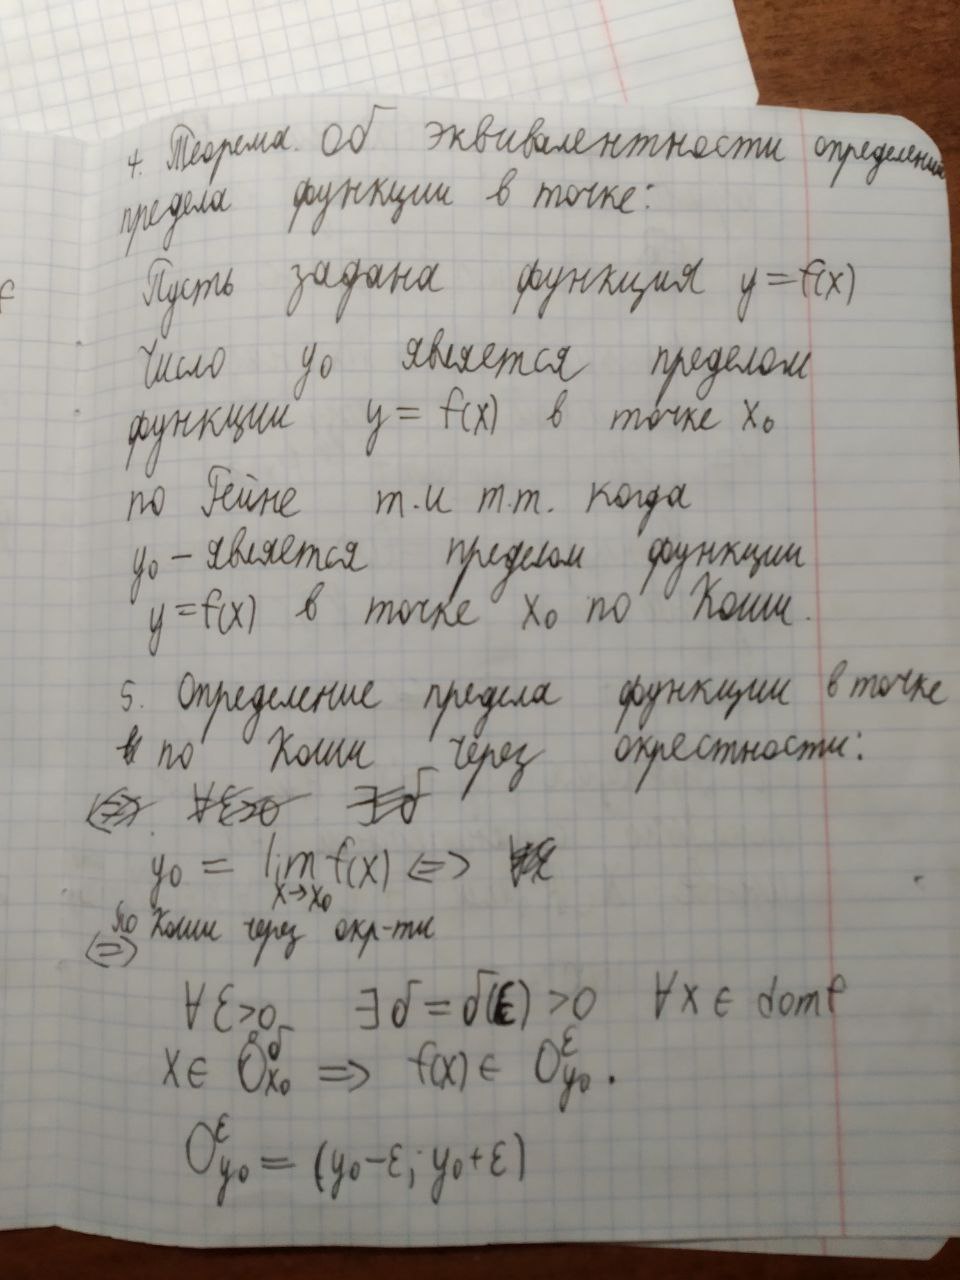 4. Теорема. Об эквивалентности определений
предела функции в точке:
Пусть задана функция y=f(x)
Число y₀ является пределом
функции y = f(x) в точке x₀
по Гейне т.и т.т. когда
y₀ – является пределом функции
y=f(x) в точке x₀ по Коши.
5. Определение предела функции в точке
по Коши через окрестности:
y₀ = lim f(x) <=>
x→x₀
По Коши через окр-ти
<=>
∀ε>0 ∃δ=δ(ε)>0 ∀x∈domf
x∈ O̊ᵟx₀ => f(x)∈ Oᵋy₀.
Oᵋy₀ = (y₀-ε; y₀+ε)